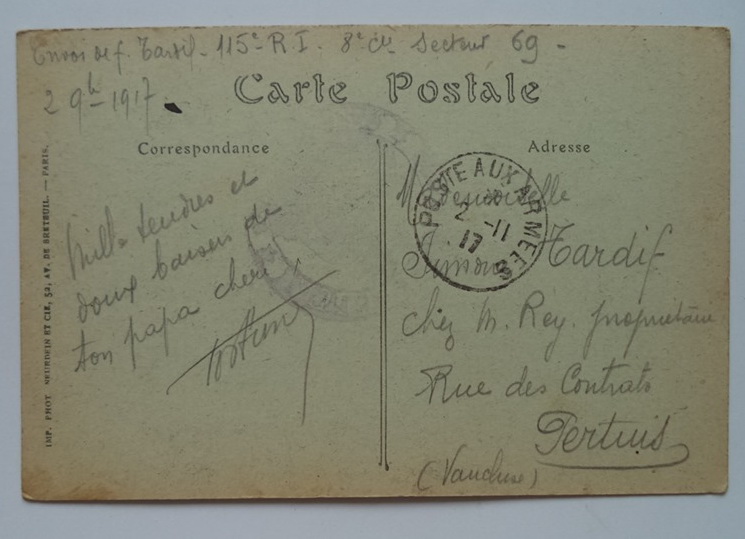 Envoi de f. Tardif - 115e R.I. 8e Cie Secteur 69 -
2 9h - 1917
Carte Postale
Correspondance
Adresse
Mille tendres et
doux baisers de
ton papa cheri
POSTE AUX ARMEES
2 -11
17
Mademoiselle
Simone Tardif
chez M. Rey. propriétaire
Rue des Contrats
Pertuis
(Vaucluse)
IMP. PHOT. NEURDEIN ET CIE, 52, AV. DE BRETEUIL. — PARIS.